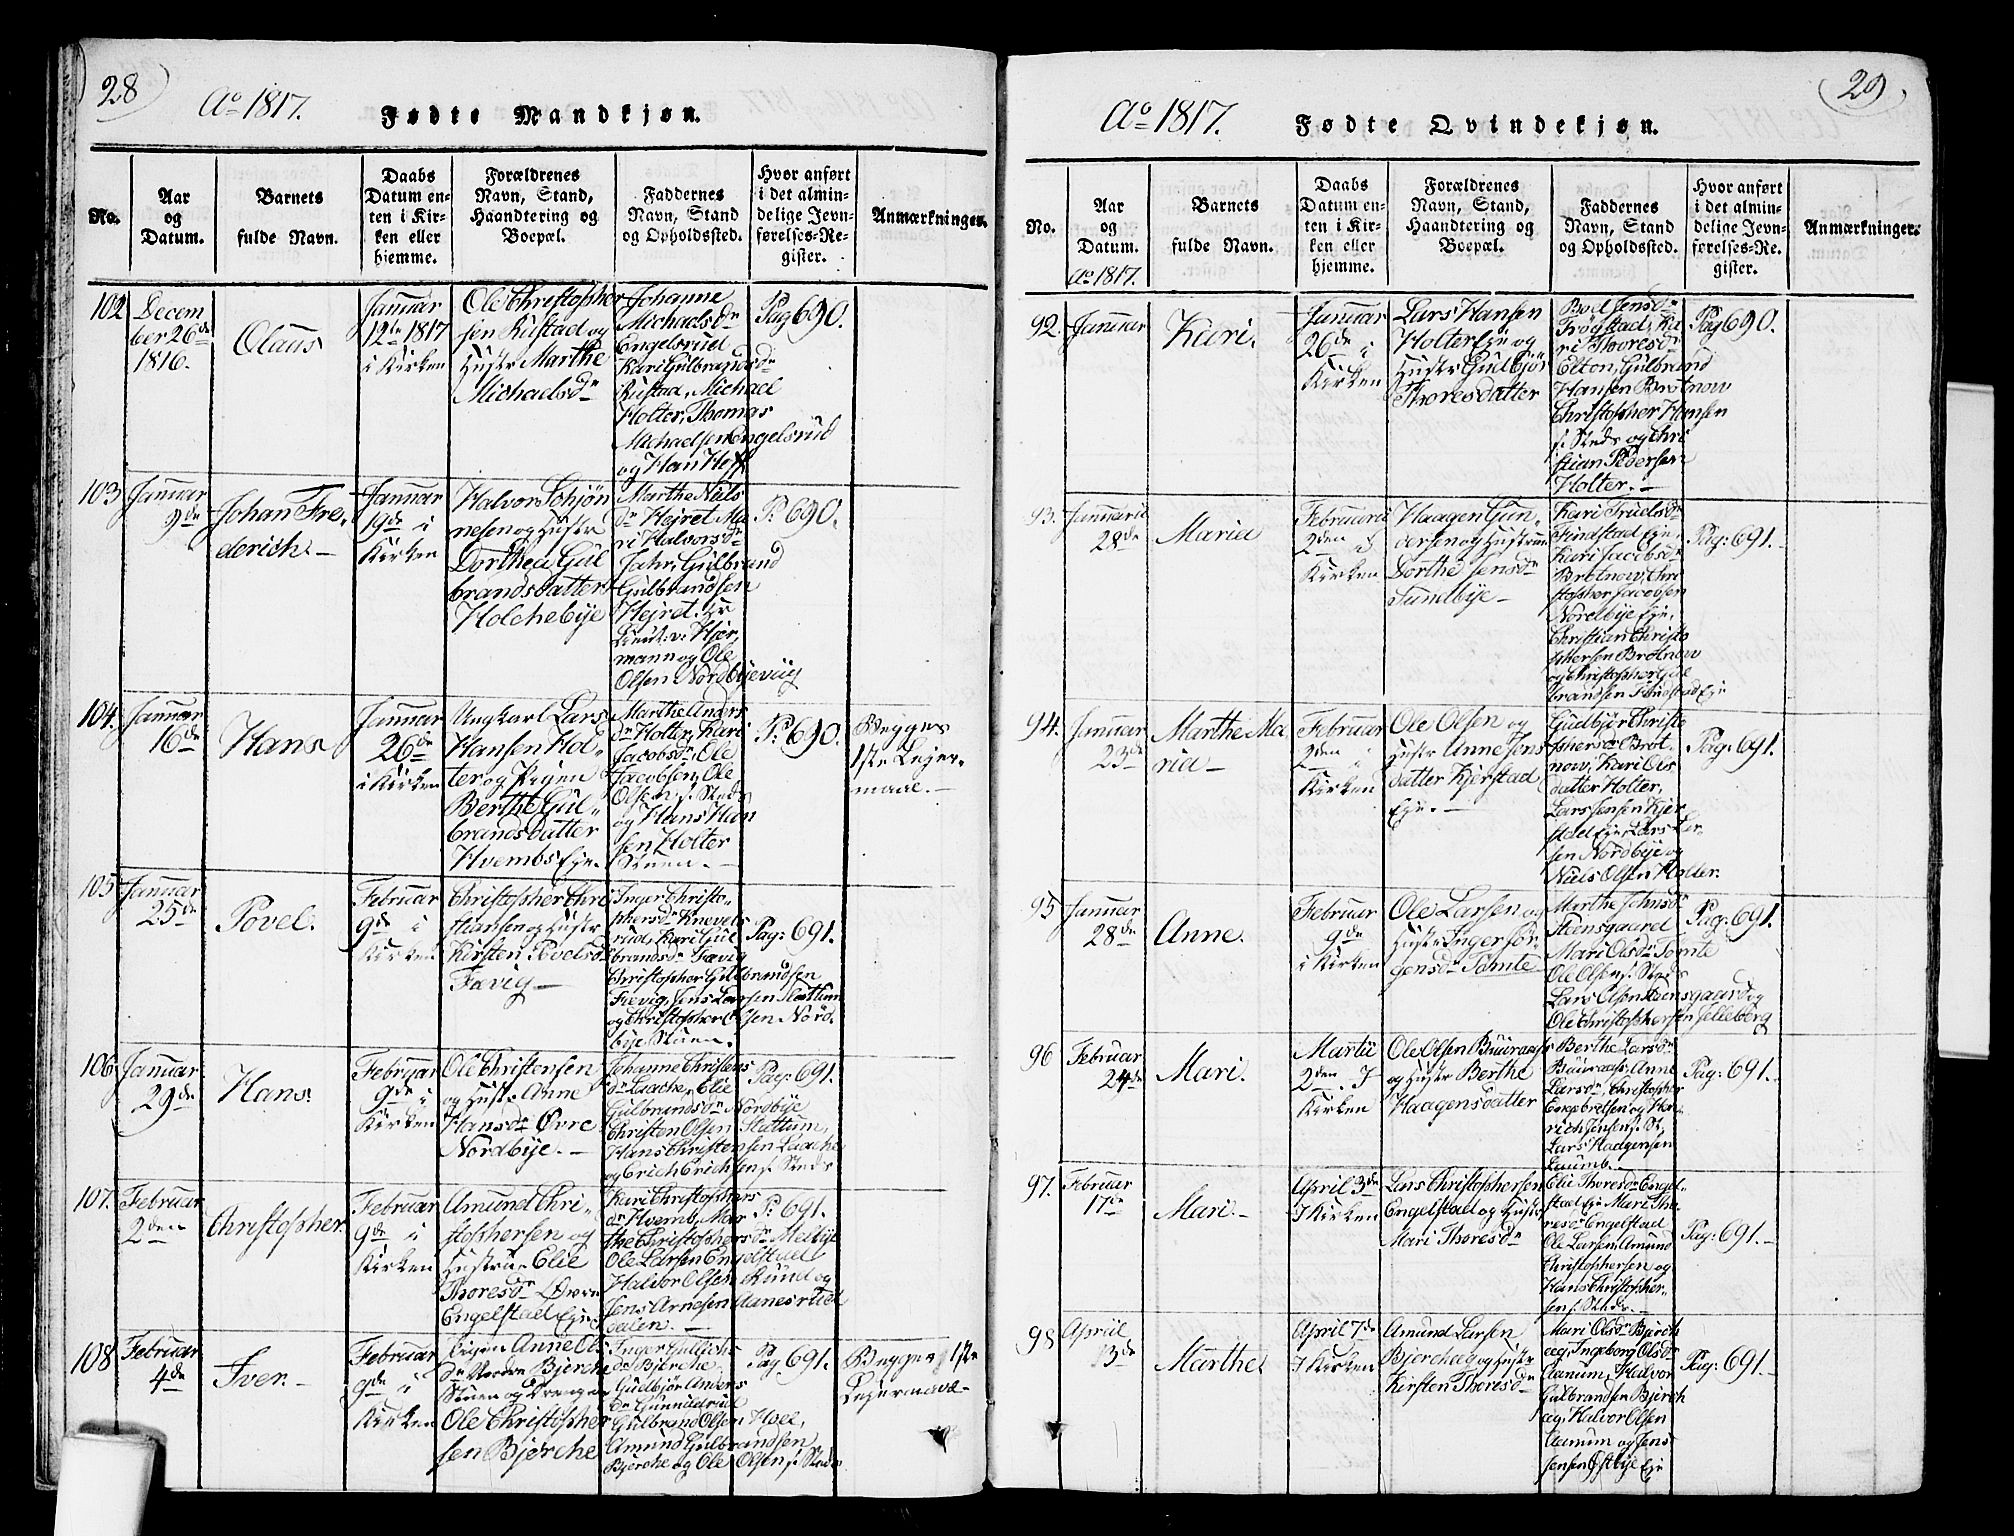 28
Ao 1817.
Fødte Mandkjøn.
No.
Aar
og
Datum.
Barnets
fulde Navn.
Daabs
Datum en-
ten i Kir-
ken eller
hjemme.
Forældrenes
Navn, Stand,
Haandtering og
Boepæl.
Faddernes
Navn, Stand
og Opholdssted.
Hvor anført
i det almin-
delige Jevn-
førelses-Re-
gister.
Anmærkninger.
102
Decem
ber 26de
1816.
Olaus
Januar
12te 1817
i Kirken
Ole Christopher
sen Rustad og
Hustr Marthe
Michaelsdr
Johanne
Michaelsdr
Engelsrud
Kari Gulbrandsdr
Rustad, Michael
Holter, Thomas
Michaelsen Engelsrud
og Han Hoff
Pag 690.
103
Januar
9de
Johan Fre-
derich.
Januar
19de i
Kirken
Halvor Schjøn
nesen og Hustr
Dorthea Gul
brandsdatter
Holchebye
Marthe Niels
dr Hejret Ma
ri Halvorsdr
Jahr, Gulbrand
Gulbrandsen
Hejret, Hr
Lieut: v: Hjer,
mann og Ole
Olsen Nordbyevug
P: 690.
104.
Januar
16de
Hans
Januar
26de
i Kirken
Ungkarl Lars
Hansen Hol-
ter og Pigen
Berthe Gul-
brandsdatter
Hvembs Eje.
Marthe Anders
dr Holter, Kari
Jacobsdr, Ole
Jacobsen, Ole
Olsen s. Steds
og Hans Han
sen Holter
Stuen.
P: 690.
Begges
1ste Lejer-
maal.
105
Januar
25de
Povel.
Februar
9de i
Kirken
Christopher Chri
stiansen og Hustr
Kirsten Povelsdr
Fævig
Inger Christo-
phersdr Knevels
rud, Kari Gul
brandsdr Fævig
Christopher Gulbrandsen
Fævig, Jens Larsen Slattum
og Christopher Olsen Nord-
bye Stuen.
Pag: 691.
106.
Januar
29de
Hans
Februar
9de i
Kirken
Ole Christensen
og Hust: Anne
Hansdr Øvre
Nordbye.
Johanne Christens
dr Laache, Elie
Gulbrandsdr Nordbye
Christen Olsen Slattum,
Hans Christensen Laache
og Erich Erichsen s. Steds
Pag: 691.
107.
Februar
2den
Christopher.
Februar
9de i
Kirken
Amund Chri-
stophersen og
Hustrue Elie
Thoresdr Øvre
Engelstad Eje
Kari Christophers
dr Hvemb, Mar
the Christophersdr Melbye
Ole Larsen Engelstad
Halvor Olsen Rund og
Jens Arnesen Aanesrud
dalen.
P: 691.
108
Februar
4de
Iver.
Februar
9de i
Kirken
Pigen Anne Ols
dr Nordre Bjerche
Stuen og Drengen
Ole Christopher
sen Bjerche
Inger Gullichs
dr Bjerche,
Gudbjør Anders
dr Gunnderud
Gulbrand Olsen Hoel,
Amund Gulbrandsen
Bjerche og Ole Olsen s. Steds
Pag 691.
Begges 1ste
Lejermaal
29
Ao 1817.
Fødte Qvindekjøn.
No.
Aar
og
Datum.
Ao 1817.
Barnets
fulde Navn.
Daabs
Datum en-
ten i Kir-
ken eller
hjemme.
Forældrenes
Navn, Stand,
Haandtering og
Boepæl.
Faddernes
Navn, Stand
og Opholdssted.
Hvor anført
i det almin-
delige Jevn-
førelses-Re-
gister.
Anmærkninger.
92.
Januar
Kari.
Januar
26de i
Kirken
Lars Hansen
Holter Eje og
Hustr Gulbjør
Thoresdatter
Boel Jensdr
Frogstad, Ka
ri Thoresdr
Elton, Gulbrand
Hansen Brotnow
Christopher Hansen
s. Steds og Chri
stian Pedersen
Holter.
Pag 690.
93.
Januarii
28de
Maria
Februarii
2den I
Kirken
Haagen Gun-
dersen og Hustrue
Dorthe Jensdr
Sundbye
Kari Truelsdr
Findstad Eje,
Kari Jacobsdr
Brotnow, Chri
stopher Jacobsen
Nordbye Eje,
Christian Christo
phersen Brotnow
og Christopher Gul
brandsen Findstad Eje
Pag: 691.
94.
Januar
23de
Marthe Ma
ria
Februar
2den i
Kirken
Ole Olsen og
Hustr Anne Jens
datter Kjerstad
Eje.
Gudbjør Christo
phersdr Brot-
now, Kari Ols
datter Holter,
Lars Jensen Kjer
stad Eje, Lars Lar-
sen Nordbye og
Niels Olsen Holter.
Pag: 691.
95
Januar
28de
Anne.
Februar
9de
i Kirken
Ole Larsen og
Hustr Inger Jør-
gensdr Tomte
Marthe Johnsdr
Steensgaard
Mari Olsdr Tomte
Ole Olsen s. Steds
Lars Olsen Steensgaard og
Ole Christophersen Jelleberg
Pag: 691.
96
Februar
24de
Mari.
Martii
2den I
Kirken
Ole Olsen Buuraas
og Hustr Berthe
Haagensdatter
Berthe Larsdr
Buuraas, Anne
Larsdr, Christopher
Engebretsen og Hen-
rich Jensen s. St,
Lars Haagensen
Luumb.
Pag: 691.
97.
Februar
17de
Mari.
April 3de
I Kirken
Lars Christophersen
Engelstad og Hustr
Mari Thoresdr
Elie Thoresdr Engel-
stad Eje Mari Tho-
resdr Engelstad
Ole Larsen, Amund
Christophersen og
Hans Christopher-
sen s. Steds.
Pag: 691.
98
April
13de
Marthe.
April 7de
I Kirken
Amund Larsen
Bjerchaeg og Hustr
Kirsten Thoresdr
Mari Olsdr Bjerch
aeg, Ingeborg Olsdr
Aamum, Halvor
Gulbrandsen Bjerch
aeg, Halvor Olsen
Aamum og Jens
Jensen Østbye Eje
Pag: 691.